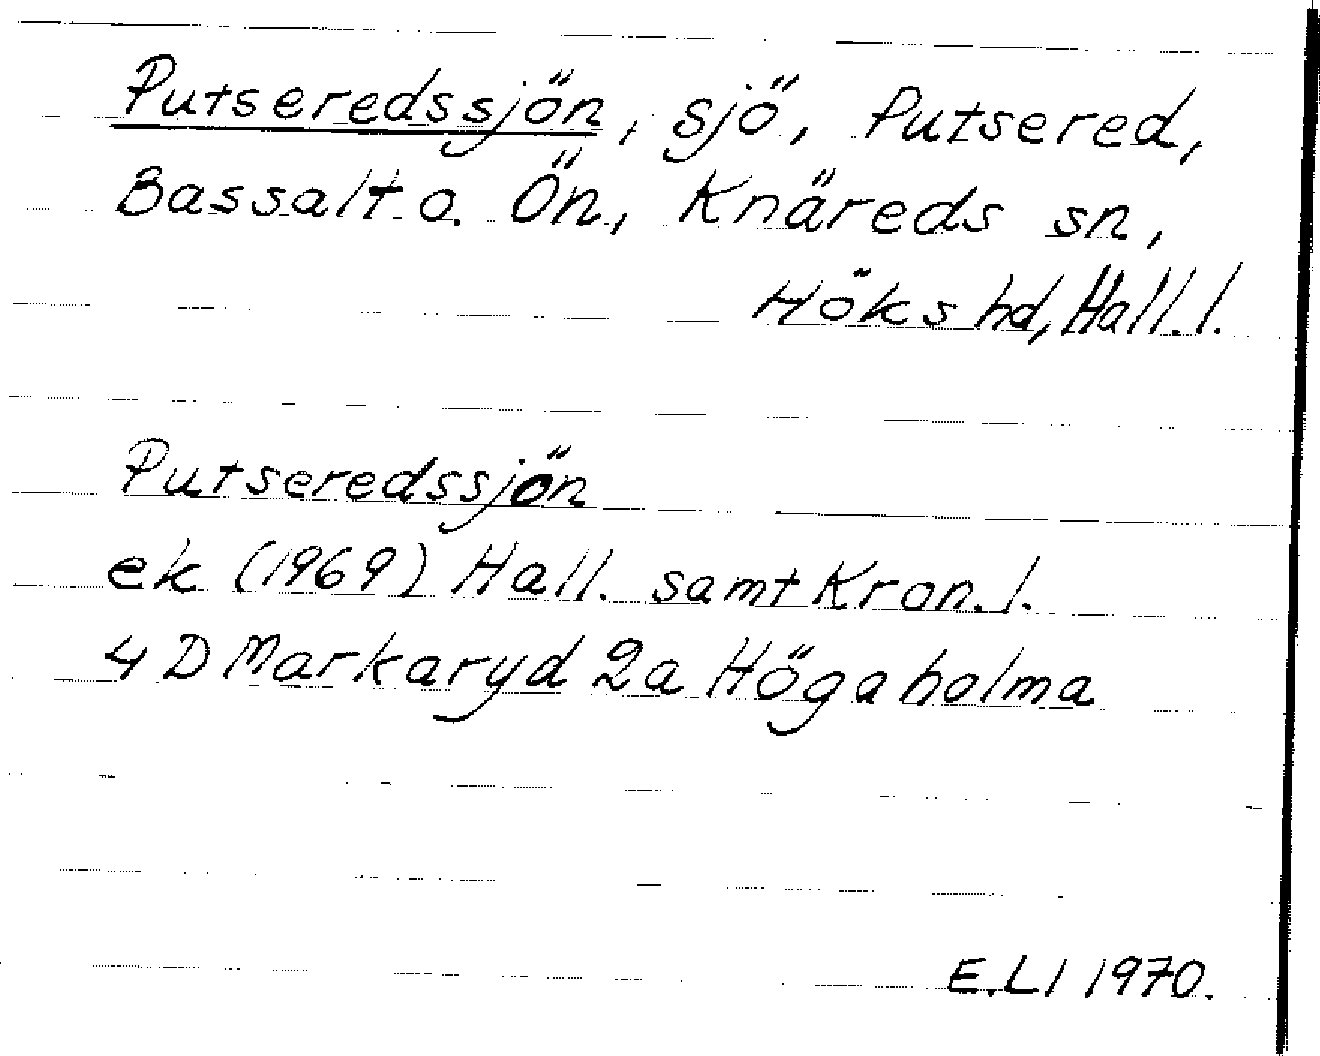 Putseredssjön, sjö, Putsered,
Bassalt o. Ön, Knäreds sn,
Höks hd, Hall. l.
Putseredssjön
ek (1969) Hall. samt Kron. l.
4 D Markaryd 2a Högaholma
E.LI 1970.